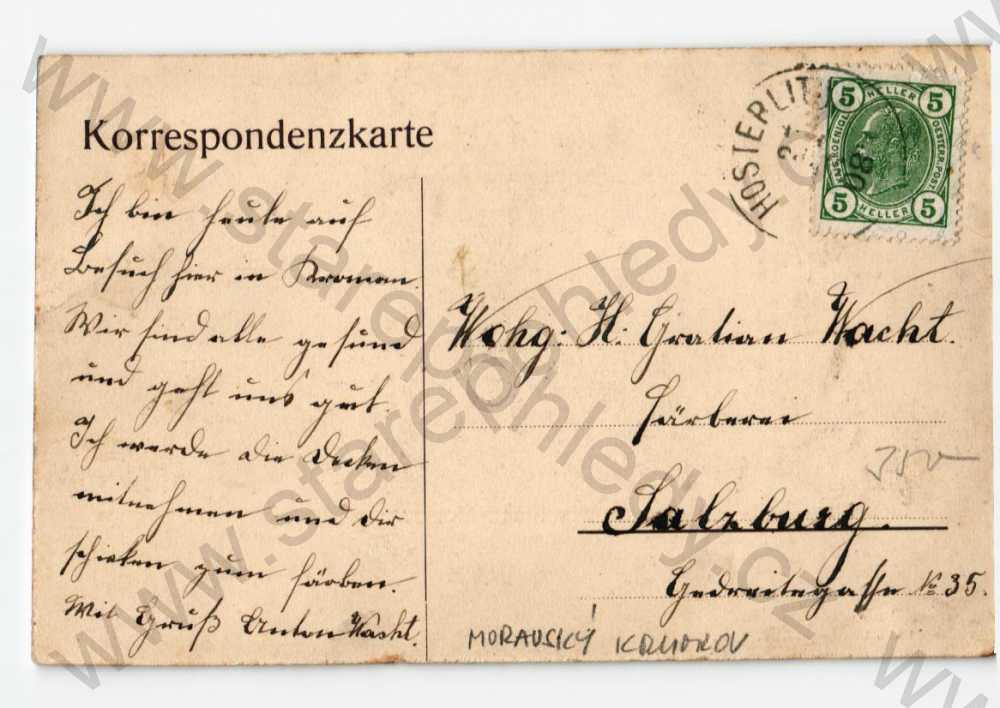 Korrespondenzkarte
Ich bin heute auf
Besuch hier in Kroman.
Wir sind alle gesund
und geht uns gut.
Ich werde die Decken
mitnehmen und dir
schicken zum färben.
Mit Gruß Anton Wacht.
HOSTERLITZ
08
5 HELLER 5
OESTERR. POST
5 HELLER 5
Wohg: H: Gratian Wacht.
Färberei
Salzburg.
Gedreitegasse № 35.
MORAVSKÝ KRUMLOV
www.starepohledy.cz
www.starepohledy.cz